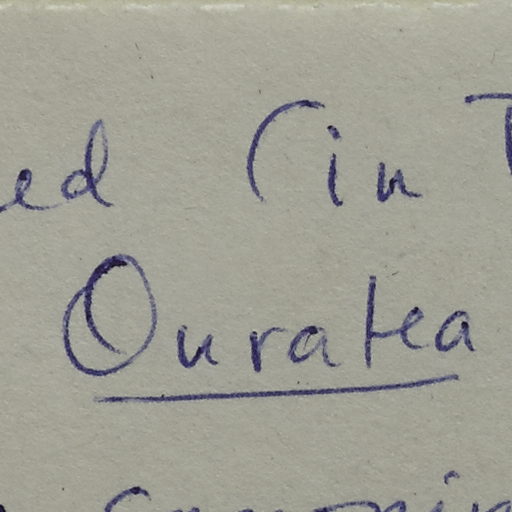 ed (in T
Ouratea